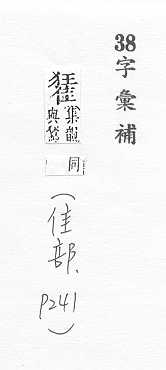 38字彙補
集韻
與鵟
同
(佳部、p241)